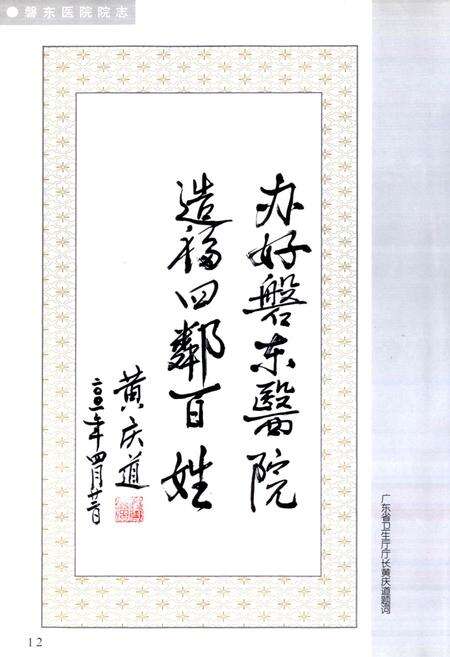 磐东医院院志
办好磐东醫院
造福四鄰百姓
黄庆道
二〇〇一年四月廿二日
广东省卫生厅厅长黄庆道题词
12